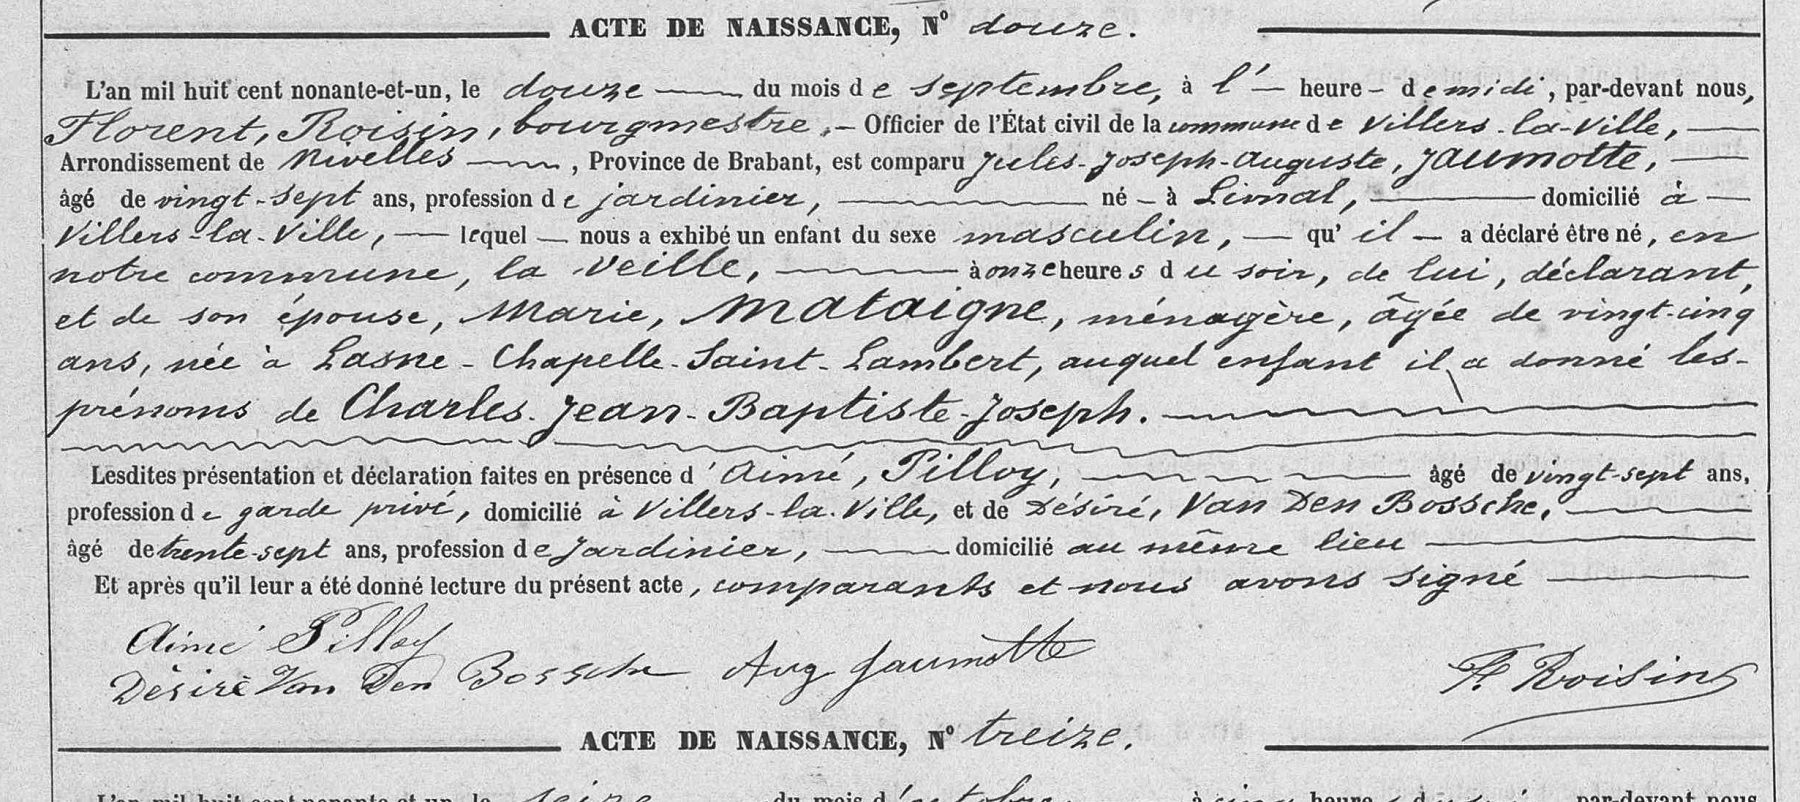 ACTE DE NAISSANCE, N° douze.
L'an mil huit cent nonante-et-un, le douze du mois de septembre, à l' heure demidi, par-devant nous,
Florent, Roisin, bourgmestre, Officier de l'État civil de la commune de Villers-la-Ville,
Arrondissement de Nivelles, Province de Brabant, est comparu Jules-Joseph-Auguste, Jaumotte,
âgé de vingt-sept ans, profession de jardinier, né à Limal, domicilié à
Villers-la-Ville, lequel nous a exhibé un enfant du sexe masculin, qu'il a déclaré être né, en
notre commune, la veille, à onze heures du soir, de lui, déclarant,
et de son épouse, Marie, Mataigne, ménagère, âgée de vingt-cinq
ans, née à Lasne-Chapelle-Saint-Lambert, auquel enfant il a donné les
prénoms de Charles-Jean-Baptiste-Joseph.
Lesdites présentation et déclaration faites en présence d'Aimé, Pilloy, âgé de vingt-sept ans,
profession de garde privé, domicilié à Villers-la-Ville, et de Désiré, Van Den Bossche,
âgé de trente-sept ans, profession de Jardinier, domicilié au même lieu
Et après qu'il leur a été donné lecture du présent acte, comparants et nous avons signé
Aimé Pilloy
Désiré Van Den Bossche Aug Jaumotte F. Roisin
ACTE DE NAISSANCE, N° treize.
L'an mil huit cent nonante-et-un, le seize du mois d'octobre, à cinq heures du par-devant nous